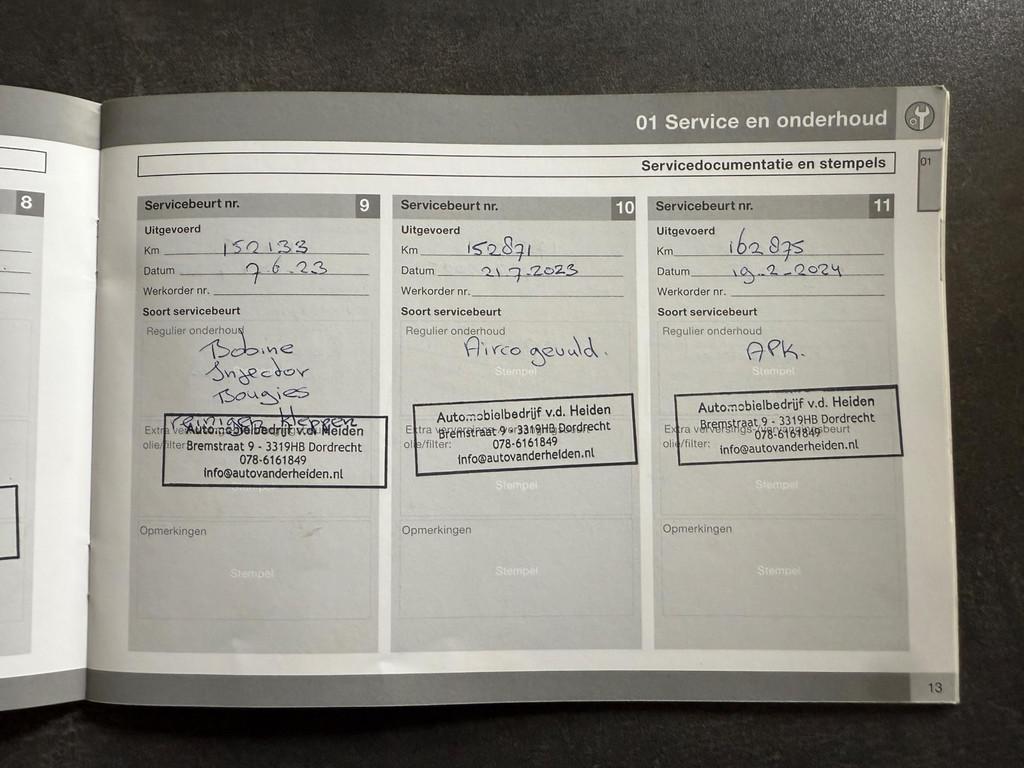 01 Service en onderhoud
Servicedocumentatie en stempels
01
8
Servicebeurt nr. 9
Uitgevoerd
Km 152133
Datum 7.6.23
Werkorder nr.
Soort servicebeurt
Regulier onderhoud
Bobine
Injector
Bougies
reinigen kleppen
Extra verversings-/vervangingsbeurt
olie/filter:
Automobielbedrijf v.d. Heiden
Bremstraat 9 - 3319HB Dordrecht
078-6161849
info@autovanderheiden.nl
Opmerkingen
Stempel
Servicebeurt nr. 10
Uitgevoerd
Km 152871
Datum 21.7.2023
Werkorder nr.
Soort servicebeurt
Regulier onderhoud
Airco gevuld.
Stempel
Extra verversings-/vervangingsbeurt
olie/filter:
Automobielbedrijf v.d. Heiden
Bremstraat 9 - 3319HB Dordrecht
078-6161849
info@autovanderheiden.nl
Stempel
Opmerkingen
Stempel
Servicebeurt nr. 11
Uitgevoerd
Km 162875
Datum 19-2-2024
Werkorder nr.
Soort servicebeurt
Regulier onderhoud
APK.
Stempel
Extra verversings-/vervangingsbeurt
olie/filter:
Automobielbedrijf v.d. Heiden
Bremstraat 9 - 3319HB Dordrecht
078-6161849
info@autovanderheiden.nl
Stempel
Opmerkingen
Stempel
13